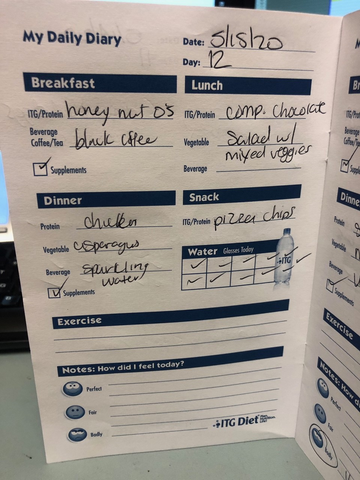 My Daily Diary
Date: 5/15/20
Day: 12
Breakfast
ITG/Protein honey nut O's
Beverage Coffee/Tea black coffee
Supplements
Lunch
ITG/Protein comp. chocolate
Vegetable Salad w/
mixed veggies
Beverage
Dinner
Protein chicken
Vegetable asparagus
Beverage sparkling
water
Supplements
Snack
ITG/Protein pizza chips
Water Glasses Today
ITG
Exercise
Notes: How did I feel today?
Perfect
Fair
Badly
ITG Diet
Exercise
Notes: How d
Perfect
Fair
Badly